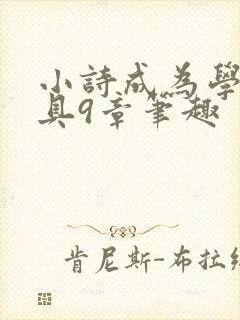 小詩成為學
具9章筆趣
肯尼斯-布拉